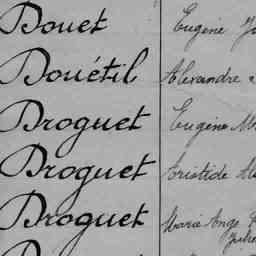 Douet Eugène
Douétil Alexandre
Droguet Eugène
Droguet Aristide
Droguet Marie Ange